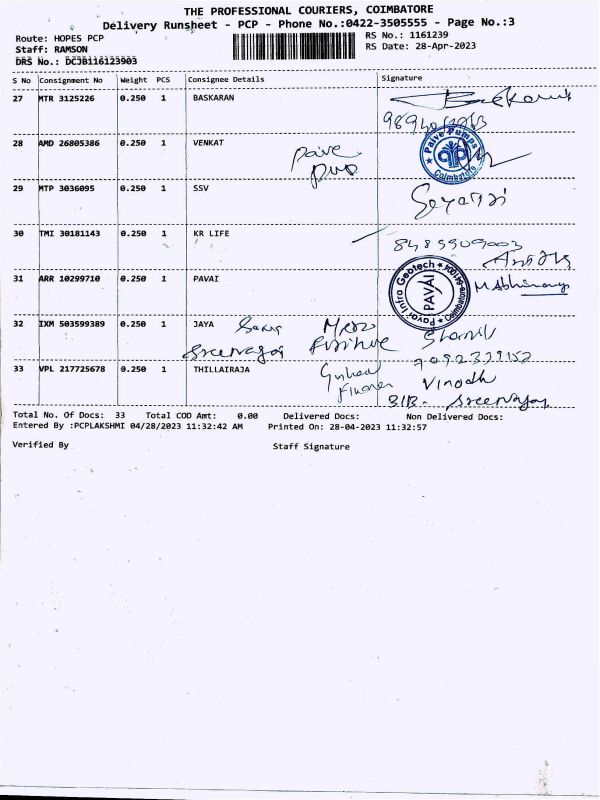 THE PROFESSIONAL COURIERS, COIMBATORE
Delivery Runsheet - PCP - Phone No.:0422-3505555 - Page No.:3
Route: HOPES PCP RS No.: 1161239
Staff: RAMSON RS Date: 28-Apr-2023
DRS No.: DCJB116123903
S No Consignment No Weight PCS Consignee Details Signature
27 MTR 3125226 0.250 1 BASKARAN Baskaran
28 AMD 26805386 0.250 1 VENKAT Paive Pumps Coimbatore
29 MTP 3036095 0.250 1 SSV
30 TMI 30181143 0.250 1 KR LIFE
31 ARR 10299710 0.250 1 PAVAI Pavai Infra Geotech PAVAI Coimbatore
32 IXM 503599389 0.250 1 JAYA
Sreenagar
33 VPL 217725678 0.250 1 THILLAIRAJA Vinodh
Sreenagar
Total No. Of Docs: 33 Total COD Amt: 0.00 Delivered Docs: Non Delivered Docs:
Entered By :PCPLAKSHMI 04/28/2023 11:32:42 AM Printed On: 28-04-2023 11:32:57
Verified By Staff Signature